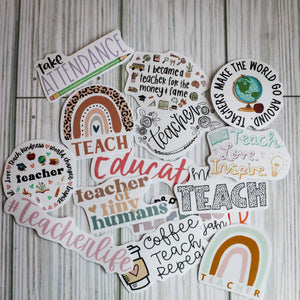 take
ATTENDANCE
I became a
teacher for the
money & fame
TEACHERS MAKE THE WORLD GO AROUND
TEACH
teacher
Teach
Love
Inspire
teacher
Educat
teacher
of tiny
humans
TEACH
#teacherlife
Coffee
Teach
Repeat
TEACHER